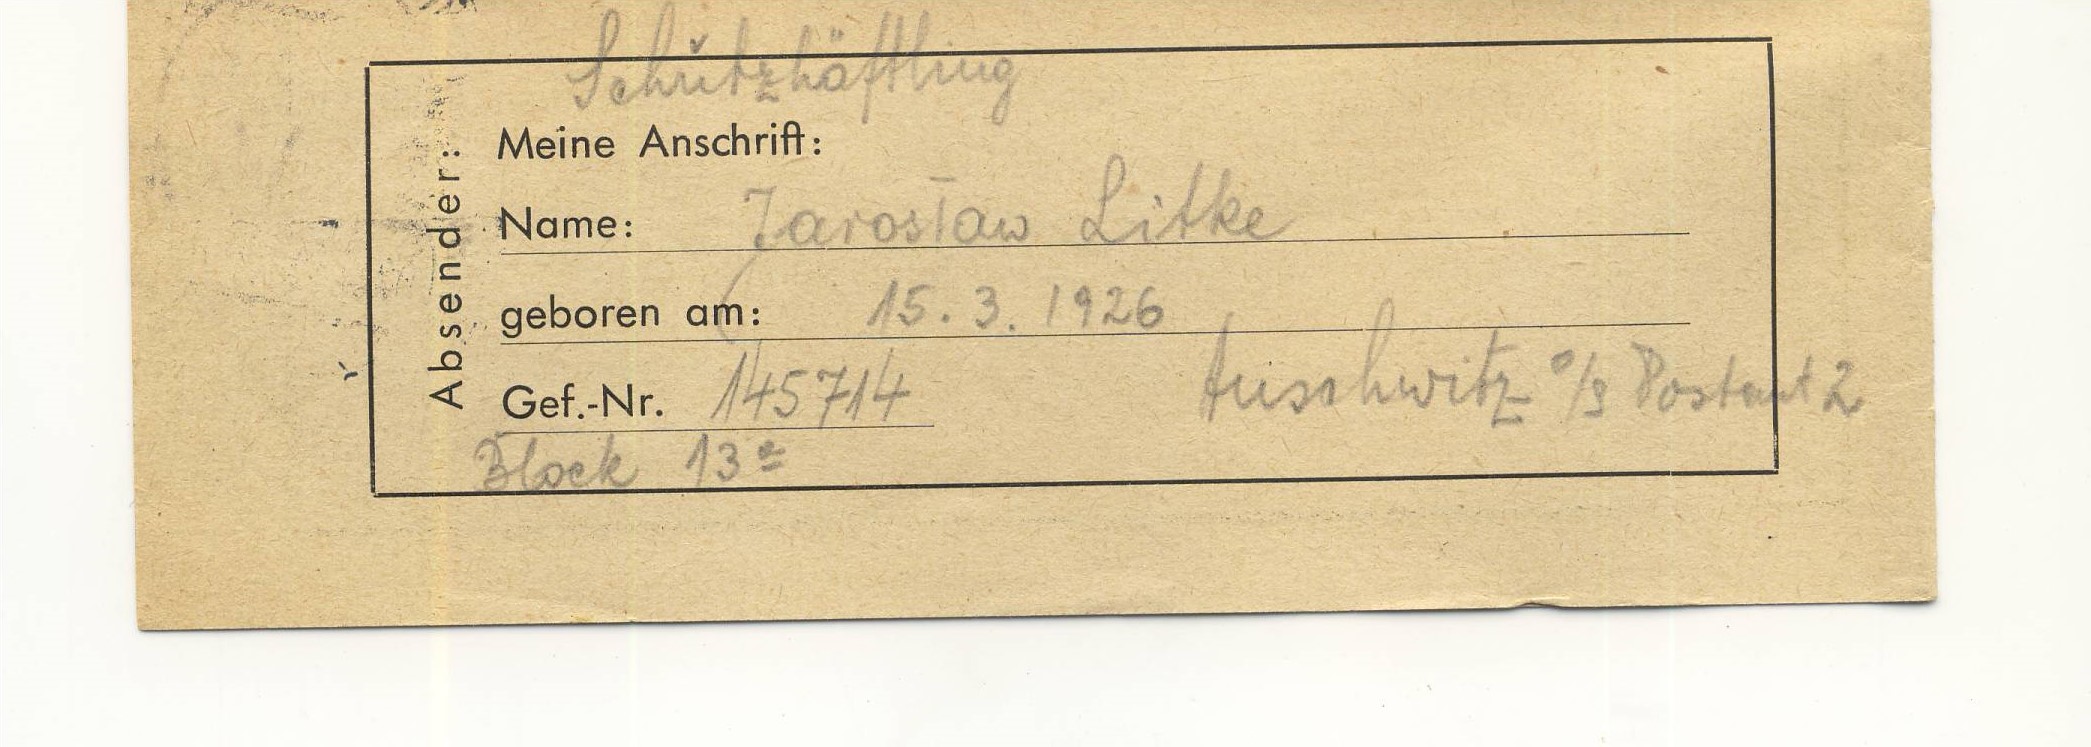 Schutzhäftling
Absender:
Meine Anschrift:
Name: Jarosław Litke
geboren am: 15. 3. 1926
Gef.-Nr. 145714 Auschwitz O/S Postamt 2
Block 13a